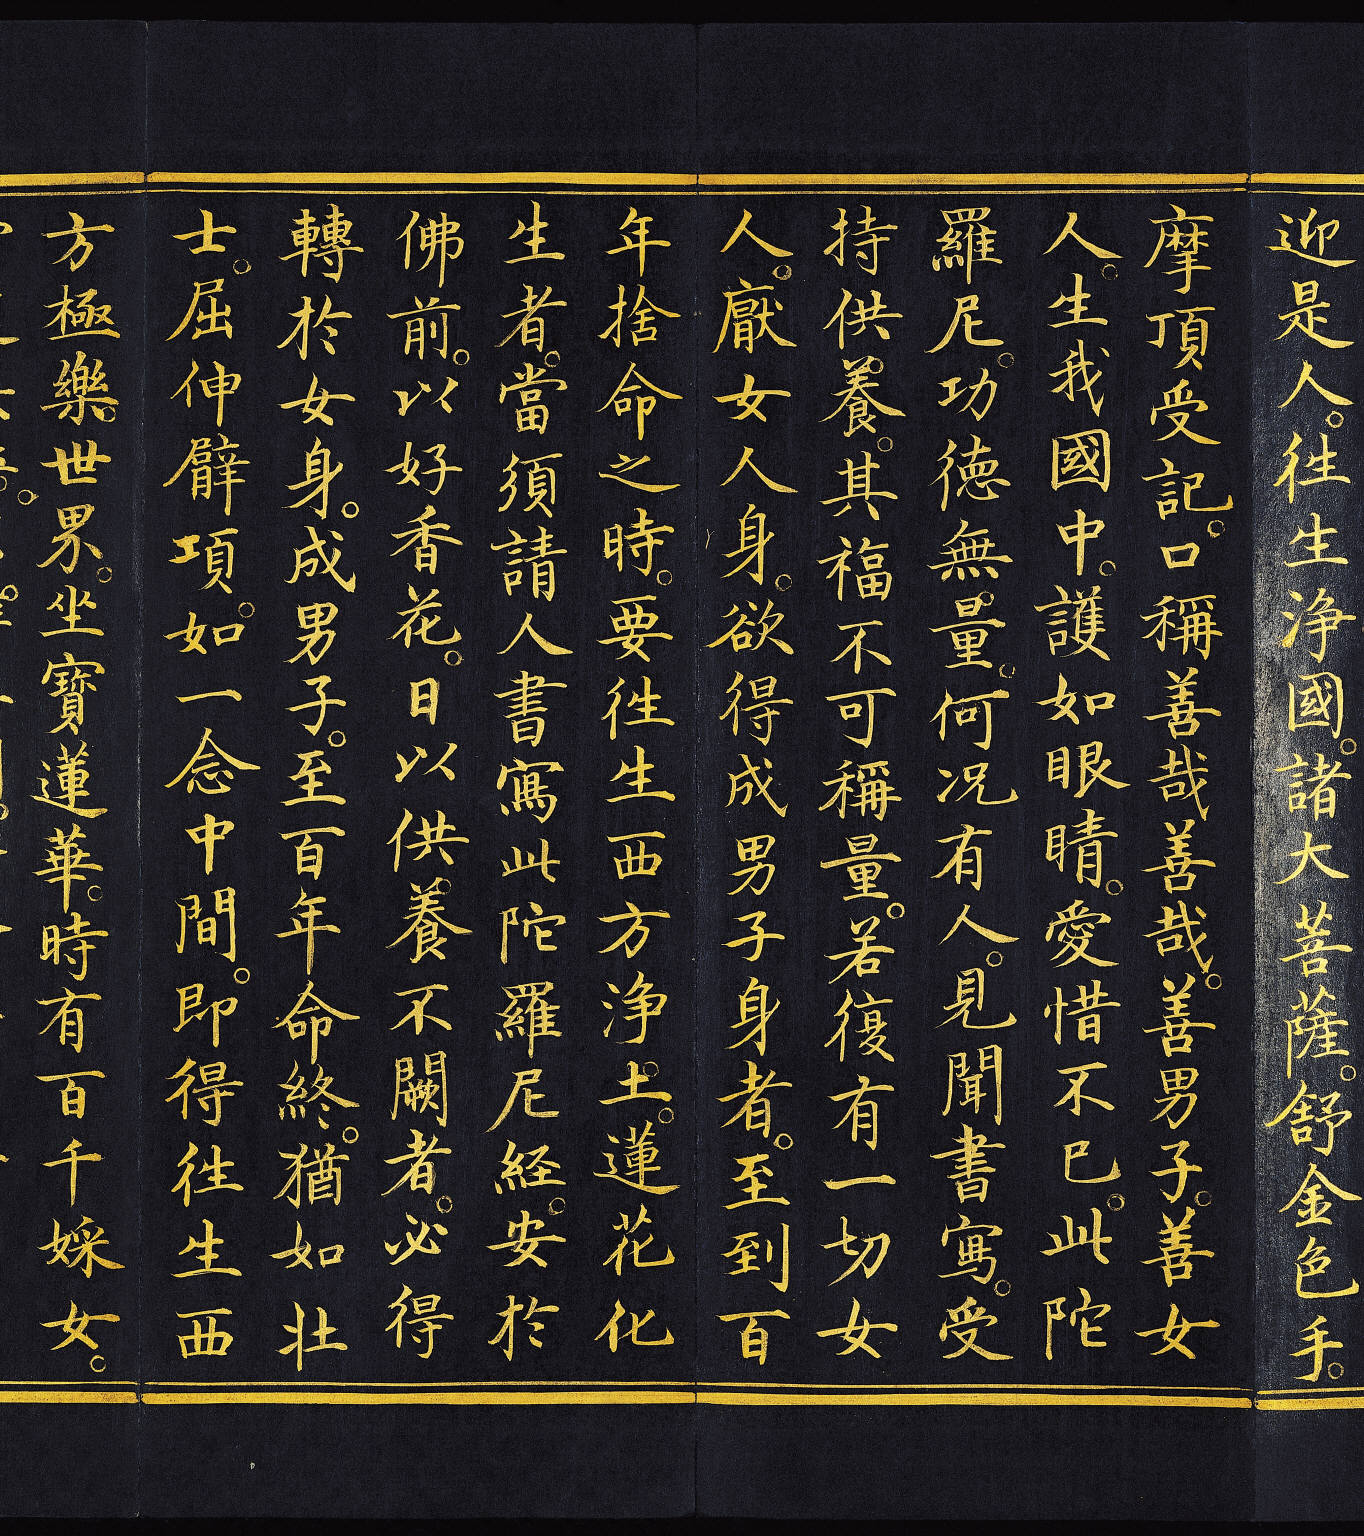 迎是人。徃生浄國。諸大菩薩。舒金色手。
摩頂受記。口稱善哉善哉。善男子。善女
人。生我國中。護如眼睛。愛惜不已。此陀
羅尼。功德無量。何況有人。見聞書寫。受
持供養。其福不可稱量。若復有一切女
人。厭女人身。欲得成男子身者。至到百
年捨命之時。要徃生西方浄土。蓮花化
生者。當須請人書寫此陀羅尼経。安於
佛前。以好香花。日以供養不闕者。必得
轉於女身。成男子。至百年命終。猶如壮
士。屈伸臂項。如一念中間。即得徃生西
方極樂。世界。坐寶蓮華。時有百千婇女。